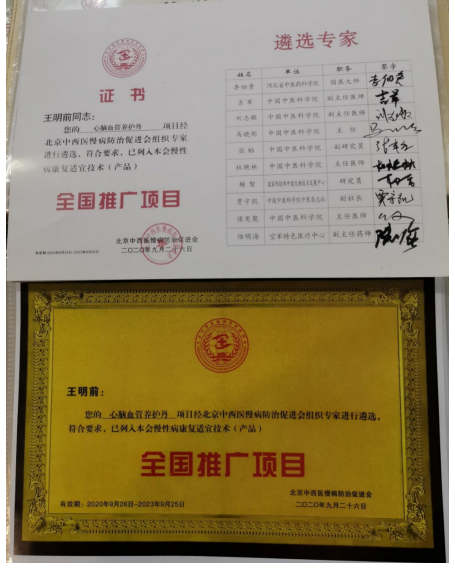 证书
王明前同志:
您的 心脑血管养护丹 项目经
北京中西医慢病防治促进会组织专家
进行遴选,符合要求,已列入本会慢性
病康复适宜技术(产品)
全国推广项目
北京中西医慢病防治促进会
二〇二〇年九月二十六
遴选专家
姓名 单位 职务 签字
河北省中医药科学院 国医大师
吉军 中国中医科学院 副主任医师
刘志顺 中国中医科学院 主任医师
马晓彤 中国中医科学院 主任
中国中医科学院 副研究员
杜艳林 中国中医科学院 主任医师
杨智 研究员
贾守凯 中国中医科学院中医杂志社 副社长
中国中医科学院 主任医师
陆明海 空军特色医疗中心 副主任药师
王明前:
您的 心脑血管养护丹 项目经北京中西医慢病防治促进会组织专家进行遴选,
符合要求,已列入本会慢性病康复适宜技术(产品)
全国推广项目
北京中西医慢病防治促进会
有效期:2020年9月26日-2023年9月25日
二〇二〇年九月二十六日